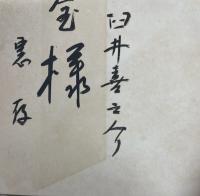 臼井喜之介
様
恵存